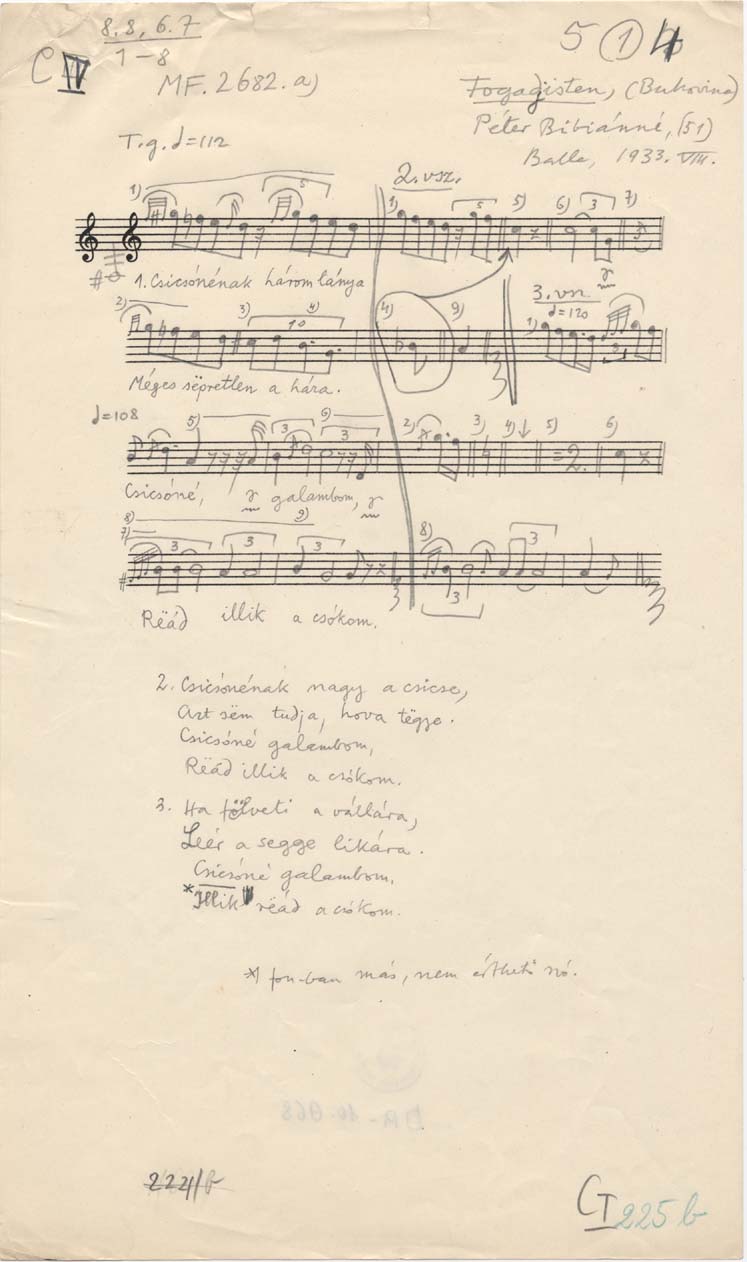 8, 8, 6, 7
1-8
C IV
MF. 2682. a)
5 1 4
Fogadjisten, (Bukovina)
Péter Bibiánné, (51)
Balla, 1933. VIII.
T.g. ♩=112
2. vsz.
1) 5 1) 5 5) 6) 3 7)
1. Csicsónénak három lánya
2) 3) 10 4) 4) 9)
3. vsz.
♩=120
1) 3
Méges sëpretlen a hára.
♩=108
5) 3 6) 3 2) 3) 4) 5) = 2. 6)
Csicsóné, galambom,
8) 9)
7) 3 3 3 8) 3 3
Rëád illik a csókom.
2. Csicsónénak nagy a csicse,
Azt sëm tudja, hova tëgye.
Csicsóné galambom,
Rëád illik a csókom.
3. Ha fölveti a vállára,
Leér a segge likára.
Csicsóné galambom,
*Illik rëád a csókom.
*) fon-ban más, nem érthető szó.
224/b
CI 225 b